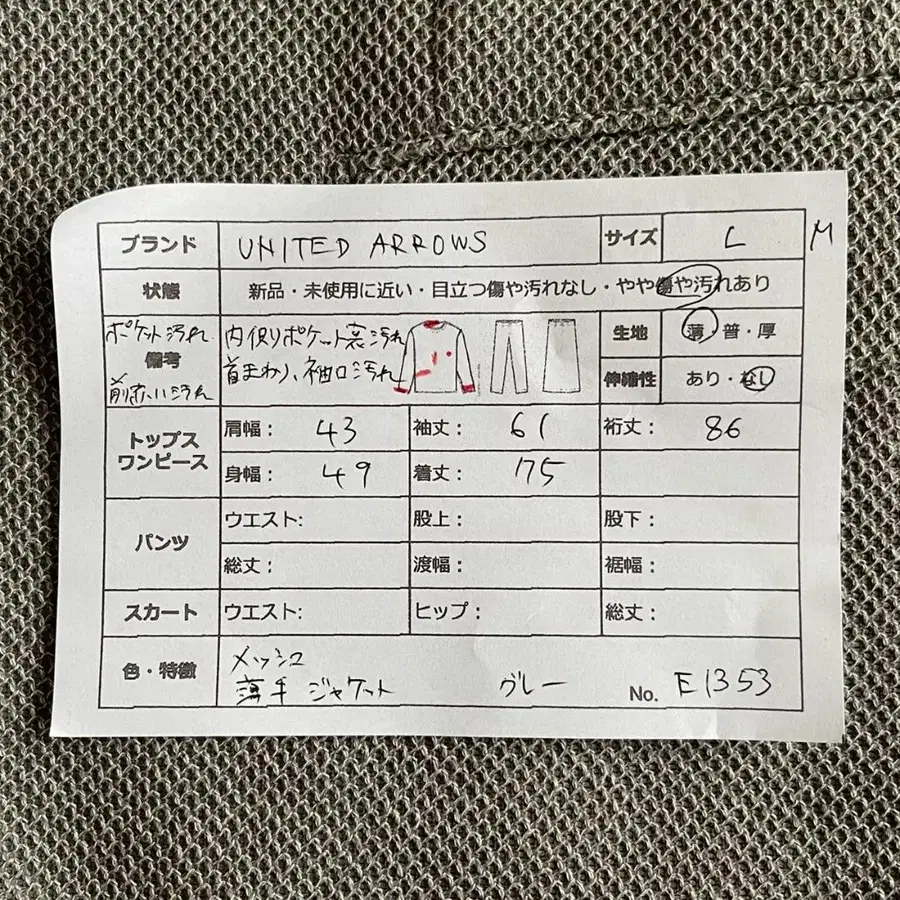 ブランド UNITED ARROWS サイズ L M
状態 新品・未使用に近い・目立つ傷や汚れなし・やや傷や汚れあり
ポケット汚れ 内側ポケット裏汚れ 生地 薄・普・厚
備考 首まわり、袖口汚れ
汚れ 伸縮性 あり・なし
トップス ワンピース 肩幅: 43 袖丈: 61 裄丈: 86
身幅: 49 着丈: 75
パンツ ウエスト: 股上: 股下:
総丈: 渡幅: 裾幅:
スカート ウエスト: ヒップ: 総丈:
色・特徴 メッシュ
薄手 ジャケット グレー No. E1353